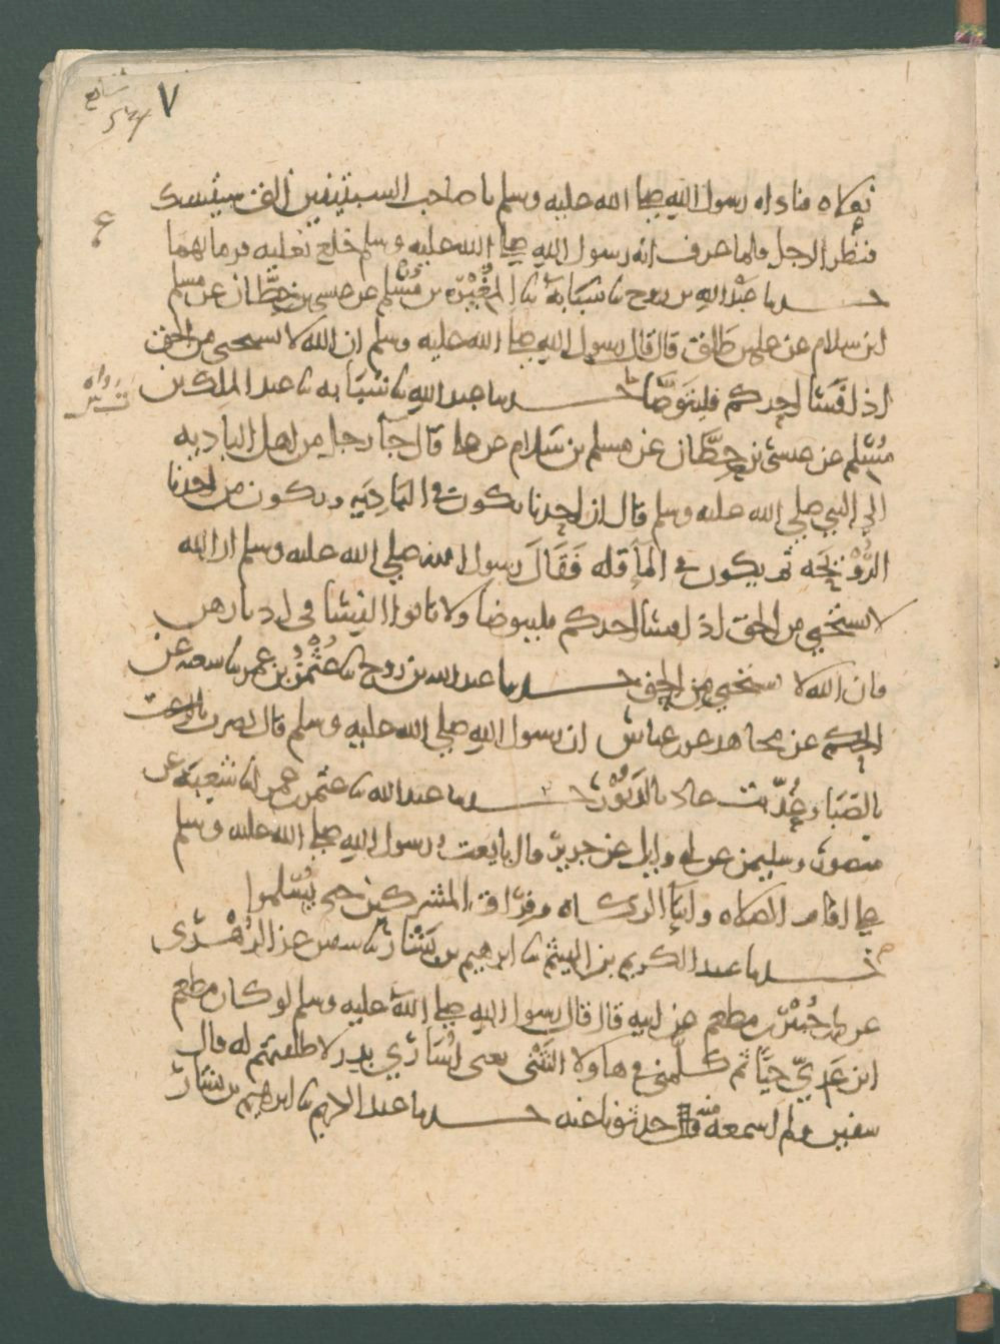 ٧
نعلاه فناداه رسول الله صلى الله عليه وسلم يا صاحب السبتيتين الق سبتيتيك
فنظر الرجل فلما عرف انه رسول الله صلى الله عليه وسلم خلع نعليه فرما بهما
حدثنا عبد الله بن روح نا شبابة نا المغيرة بن مسلم عن عيسى بن حِطَّان عن مسلم
ابن سلام عن علي بن طالق قال قال رسول الله صلى الله عليه وسلم ان الله لا يستحي من الحق
اذا فسا احدكم فليتوضَّا حدثنا عبد الله نا شبابه نا عبد الملك بن
مُسْلم عن عيسى بن حِطَّان عن مسلم بن سَلام عن علي قال جآ رجل من اهل الباديه
الى النبي صلى الله عليه وسلم قال ان احدنا يكون في الباديه ويكون من احدنا
الرُّوَيْحَه ثم يكون في المآ قله فَقَالَ رسول الله صلى الله عليه وسلم ان الله
لا يستحيي من الحق اذا فسا احدكم فليتوضا ولا تاتوا النسا في ادبارهن
فان الله لا يستحيي من الحق حدثنا عبد الله بن روح نا عُثْمٰنُ بن عمر نا شعبه عن
الحكم عن مجاهد عن ابن عباس ان رسول الله صلى الله عليه وسلم قال نصرت بالرعب
بالصَّبَا واُهْلِكَت عاد بالدَّبُوْر حدثنا عبد الله نا عثمن بن عمر انا شعبَة عن
منصور وسليمن عن ابي وايل عن جرير قال بايعت رسول الله صلى الله عليه وسلم
على اقام الصلاه وايتآ الزكاه وفراق المشركين حتى يُسْلموا
حدثنا عبد الكريم بن الهيثم نا ابرهيم بن بَشَّار نا سفين عن الزُهْري
عن محمد بن جُبَيْر بن مطعم عن ابيه قال قال رسول الله صلى الله عليه وسلم لو كان مطعم
ابن عَدِيّ حيًّا ثم كلَّمني في هاولا النَّتْنى يعنى اُسَارَى بدر لاطلقتهم له قال
سفين ولم اسمعه منه قال حدثونا عنه حدثنا عبد الكريم نا ابرهيم بن بشار